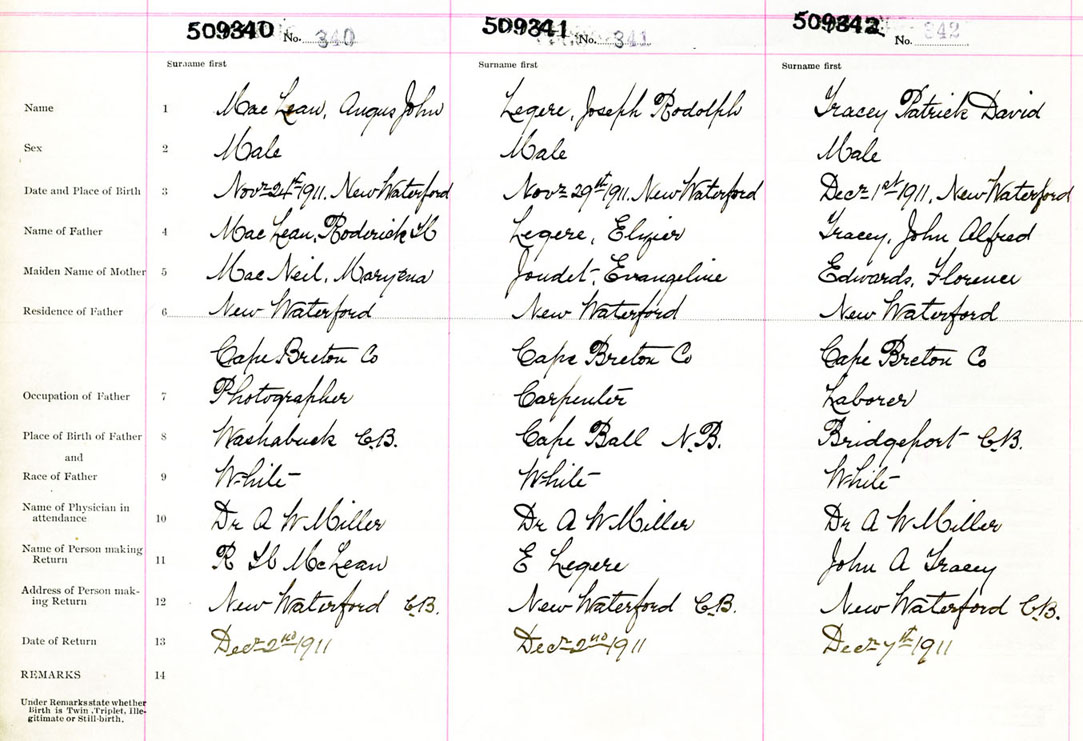 509340 No. 340 509341 No. 341 509342 No. 342
Surname first Surname first Surname first
Name 1 Mac Lean, Angus John Legere, Joseph Rodolph Tracey Patrick David
Sex 2 Male Male Male
Date and Place of Birth 3 Novr 24th 1911. New Waterford Novr 29th 1911. New Waterford Decr 1st 1911, New Waterford
Name of Father 4 Mac Lean, Roderick H Legere, Elizier Tracey, John Alfred
Maiden Name of Mother 5 Mac Neil, Maryena Joudet, Evangeline Edwards, Florence
Residence of Father 6 New Waterford New Waterford New Waterford
Cape Breton Co Cape Breton Co Cape Breton Co
Occupation of Father 7 Photographer Carpenter Laborer
Place of Birth of Father 8 Washabuck C.B. Cape Ball N.B. Bridgeport C.B.
and
Race of Father 9 White White White
Name of Physician in
attendance 10 Dr A W Miller Dr A W Miller Dr A W Miller
Name of Person making
Return 11 R H McLean E Legere John A Tracey
Address of Person mak-
ing Return 12 New Waterford C.B. New Waterford C.B. New Waterford C.B.
Date of Return 13 Decr 2nd 1911 Decr 2nd 1911 Decr 7th 1911
REMARKS 14
Under Remarks state whether
Birth is Twin, Triplet, Ille-
gitimate or Still-birth.